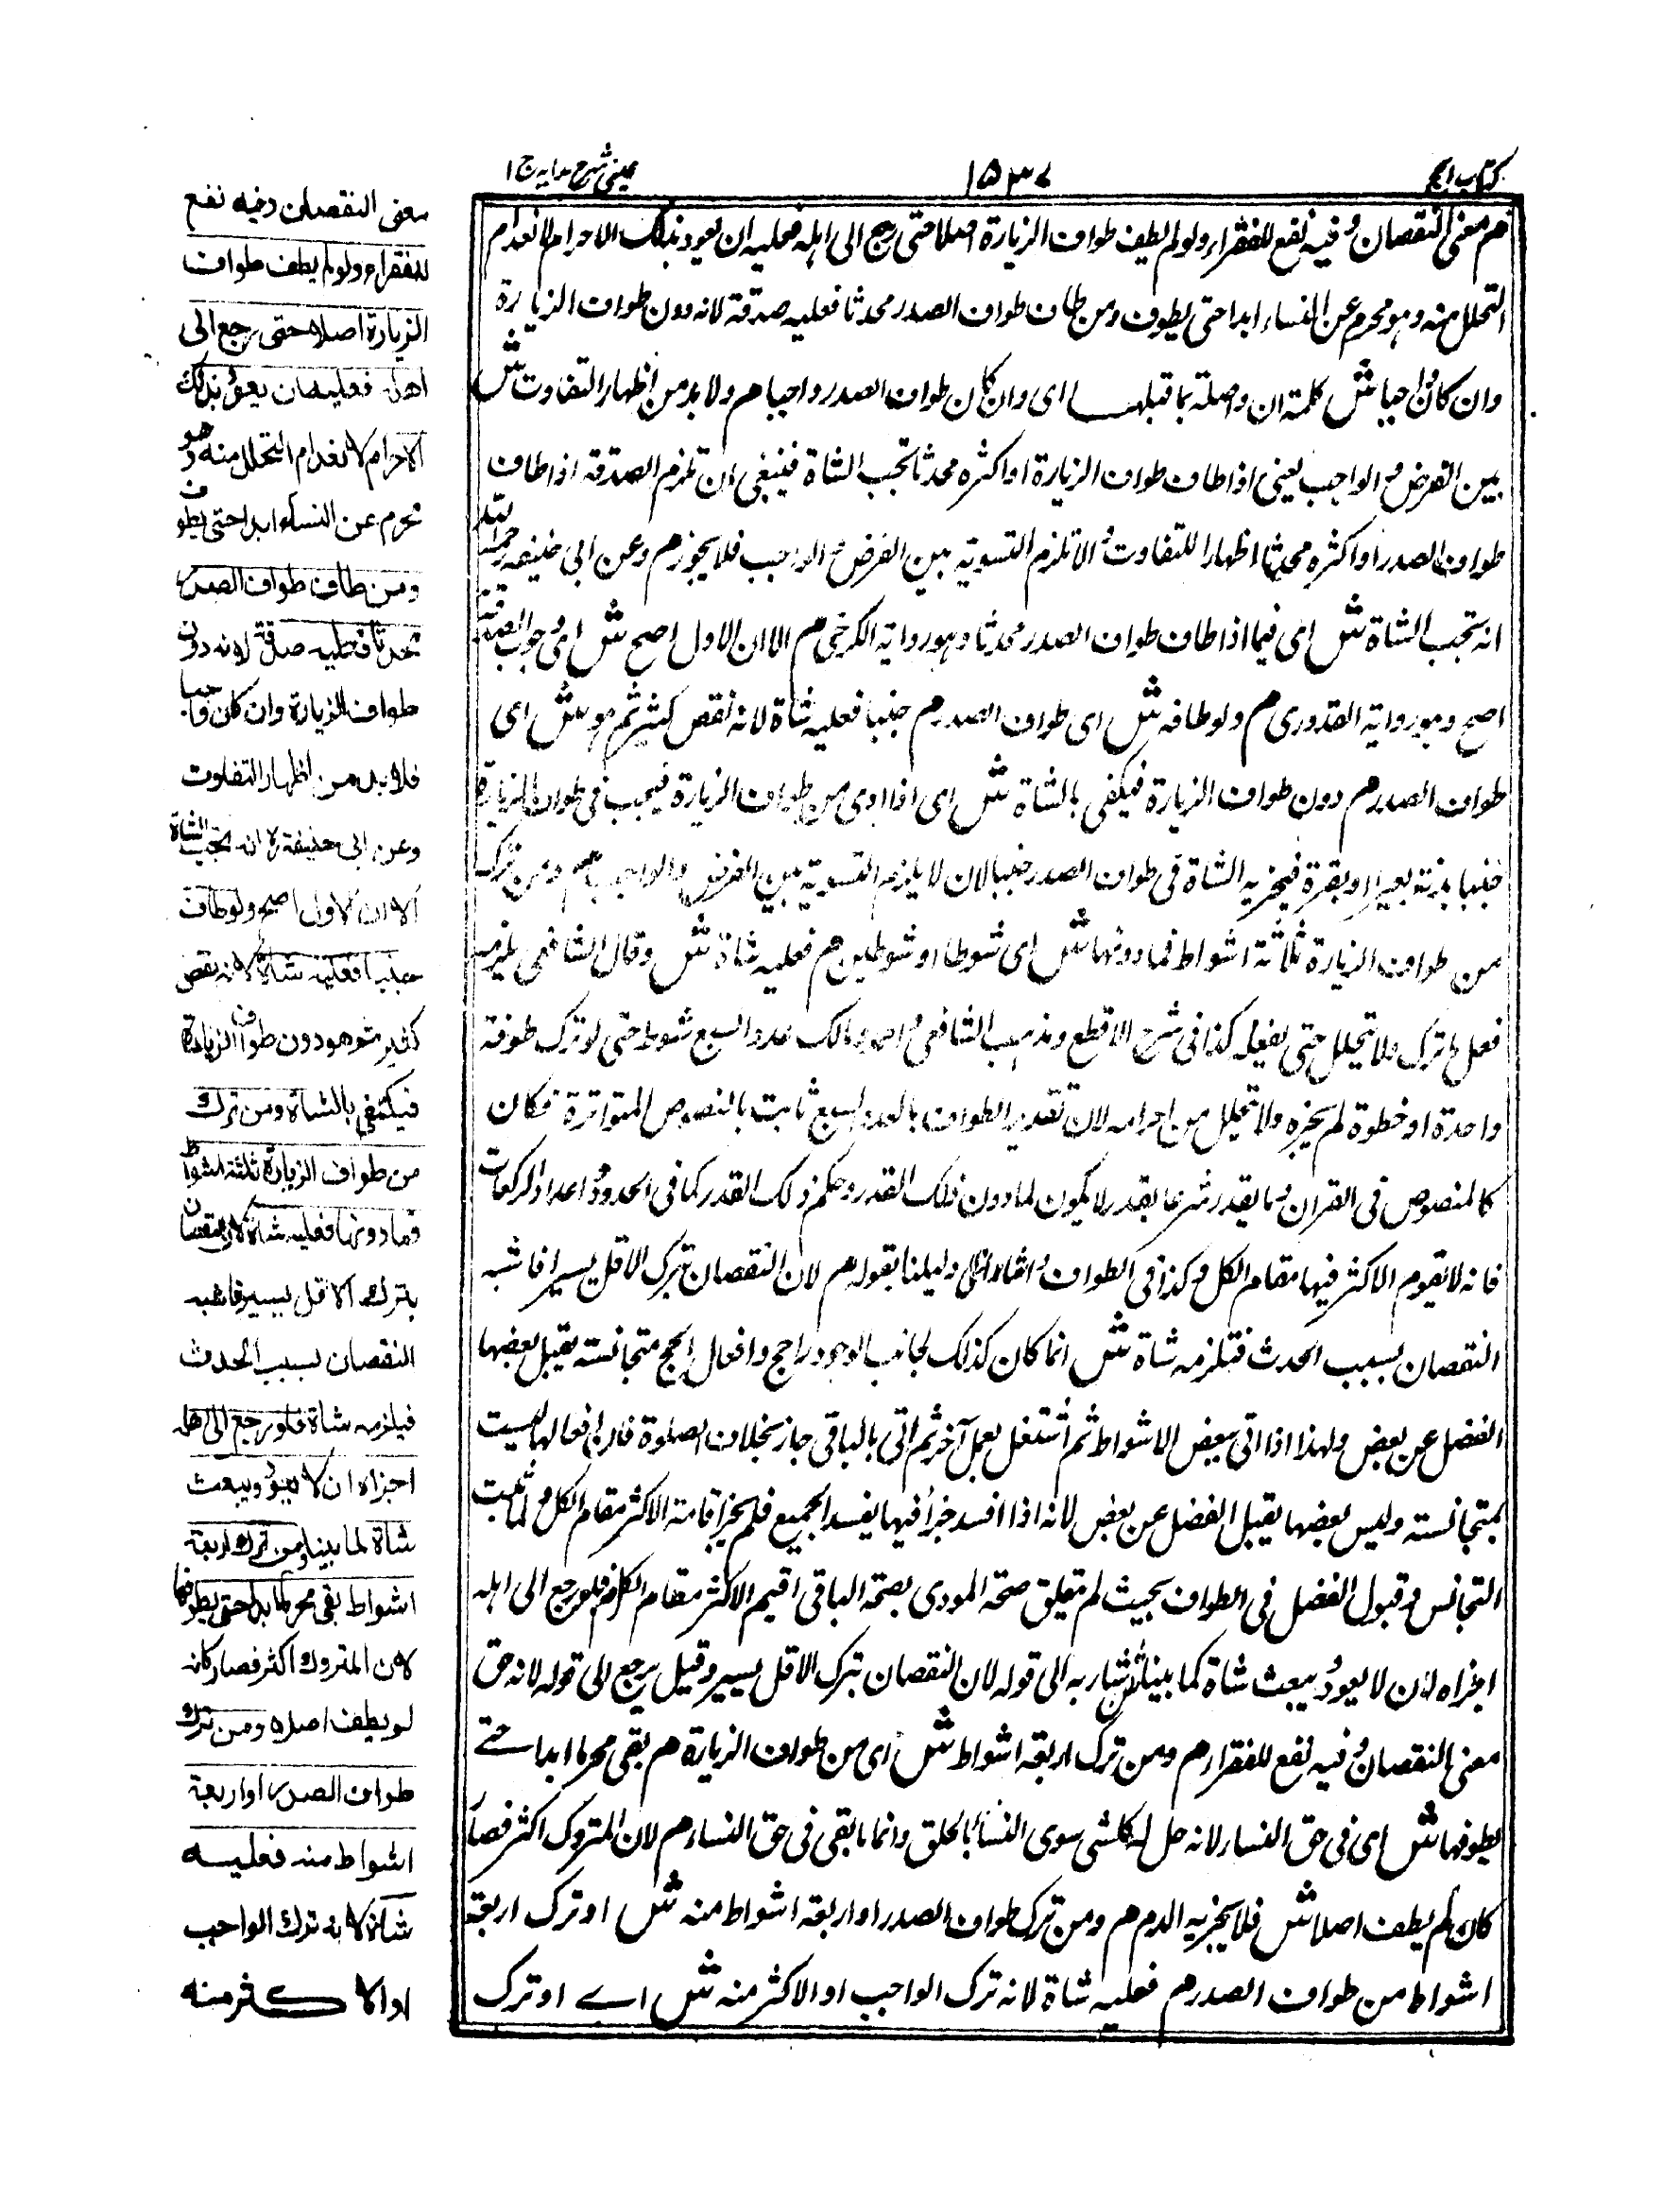 كتاب الحج
١٥٣٧
عینی شرح هدایه ج ١
هم معنى النقصان وفيه نفع للفقراء ولو لم يطف طواف الزيارة اصلا حتى رجع الى اهله فعليه ان يعود بذلك الاحرام لانعدام
التحلل منه وهو محرم عن النساء ابدا حتى يطوف ومن طاف طواف الصدر محدثا فعليه صدقة لانه دون طواف الزيارة
وان كان واجبا ش كلمة ان واصلة بما قبلها اى وان كان طواف الصدر واجبا م ولا بد من اظهار التفاوت ش
بين الفرض والواجب يعنى اذا طاف طواف الزيارة او اكثره محدثا تجب الشاة فينبغى ان تلزم الصدقة اذا طاف
طواف الصدر او اكثره محدثا اظهارا للتفاوت والا تلزم التسوية بين الفرض والواجب فلا يجوز م وعن ابى حنيفة رحمه الله
انه تجب الشاة ش اى فيما اذا طاف طواف الصدر محدثا وهو رواية الكرخى م الا ان الاول اصح ش اى وجوب الصدقة
اصح وهو رواية القدورى م ولو طافه ش اى طواف الصدر م جنبا فعليه شاة لانه نقص كثير ثم هو ش اى
طواف الصدر م دون طواف الزيارة فيكفى بالشاة ش اى اذا ادى من طواف الزيارة فيجب فى طواف الزيارة
جنبا بدنة بعير او بقرة فيجزيه الشاة فى طواف الصدر جنبا لان لا يلزم التسوية بين الفرض والواجب م ومن ترك
من طواف الزيارة ثلاثة اشواط فما دونها ش اى شوطا او شوطين م فعليه شاة ش وقال الشافعى يلزمه
فعل ما ترك ولا يتحلل حتى يفعله كذا فى شرح الاقطع ومذهب الشافعى واحمد ومالك عدد السبع شوط حتى لو ترك طوفة
واحدة او خطوة لم يجزه ولا يتحلل من احرامه لان تقدير الطواف بالعدد السبع ثابت بالنصوص المتواترة فكان
كالمنصوص فى القران وما يقدر شرعا بقدر لا يكون لما دون ذلك القدر وحكم ذلك القدر كما فى الحدود واعداد الركعات
فانه لا يقوم الاكثر فيها مقام الكل وكذا فى الطواف واشار الى دليلنا بقوله م لان النقصان بترك الاقل يسير فاشبه
النقصان بسبب الحدث فتلزمه شاة ش انما كان كذلك لجانب الوجود راجح وافعال الحج متجانسة يقبل بعضها
الفضل عن بعض ولهذا اذا اتى ببعض الاشواط ثم اشتغل بعمل آخر ثم اتى بالباقى جاز بخلاف الصلوة فان افعالها ليست
بمتجانسة وليس بعضها يقبل الفضل عن بعض لانه اذا افسد جزأ فيها يفسد الجميع فلم يجز اقامة الاكثر مقام الكل ولما ثبت
التجانس وقبول الفضل فى الطواف بحيث لم تتعلق صحة المودى بصحة الباقى اقيم الاكثر مقام الكل م فلو رجع الى اهله
اجزاه لان لا يعود ويبعث شاة كما بينا ش اشار به الى قوله لان النقصان بترك الاقل يسير وقيل يرجع الى قوله لانه حق
معنى النقصان وفيه نفع للفقراء م ومن ترك اربعة اشواط ش اى من طواف الزيارة م بقى محرما ابدا حتى
يطوفها ش اى فى حق النساء لانه حل له كل شى سوى النساء بالحلق وانما بقى فى حق النساء م لان المتروك اكثر فصار
كان لم يطف اصلا ش فلا يجزيه الدم م ومن ترك طواف الصدر او اربعة اشواط منه ش او ترك اربعة
اشواط من طواف الصدر م فعليه شاة لانه ترك الواجب او الاكثر منه ش اے او ترك
معنى النقصان وفيه نفع
للفقراء ولو لم يطف طواف
الزيارة اصلا حتى رجع الى
اهله فعليه ان يعود بذلك
الاحرام لانعدام التحلل منه وهو
محرم عن النساء ابدا حتى يطوف
ومن طاف طواف الصدر
محدثا فعليه صدقة لانه دون
طواف الزيارة وان كان واجبا
فلا بد من اظهار التفاوت
وعن ابى حنيفة رح انه تجب الشاة
الا ان الاول اصح ولو طاف
جنبا فعليه شاة لانه نقص
كثير ثم هو دون طواف الزيارة
فيكتفى بالشاة ومن ترك
من طواف الزيارة ثلثة اشواط
فما دونها فعليه شاة لان النقصان
بترك الاقل يسير فاشبه
النقصان بسبب الحدث
فيلزمه شاة فلو رجع الى اهله
اجزاه ان لا يعود ويبعث
شاة لما بينا ومن ترك اربعة
اشواط بقى محرما ابدا حتى يطوفها
لان المتروك اكثر فصار كانه
لم يطف اصلا ومن ترك
طواف الصدر او اربعة
اشواط منه فعليه
شاة لانه ترك الواجب
او الاكثر منه